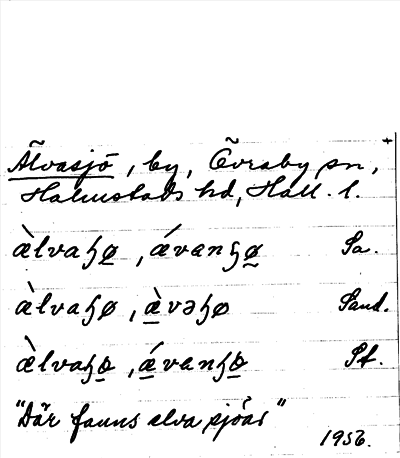 Älvasjö, by, Övraby sn,
Halmstads hd, Hall. l.
æ̀lvaɧø̠, ǽvanɧø̠ Sa.
æ̀lvaɧø, æ̠̀vəɧø Sand.
æ̀lvaɧo̠, ǽ̠vanɧo̠ St.
"Där fanns elva sjöar"
1956.